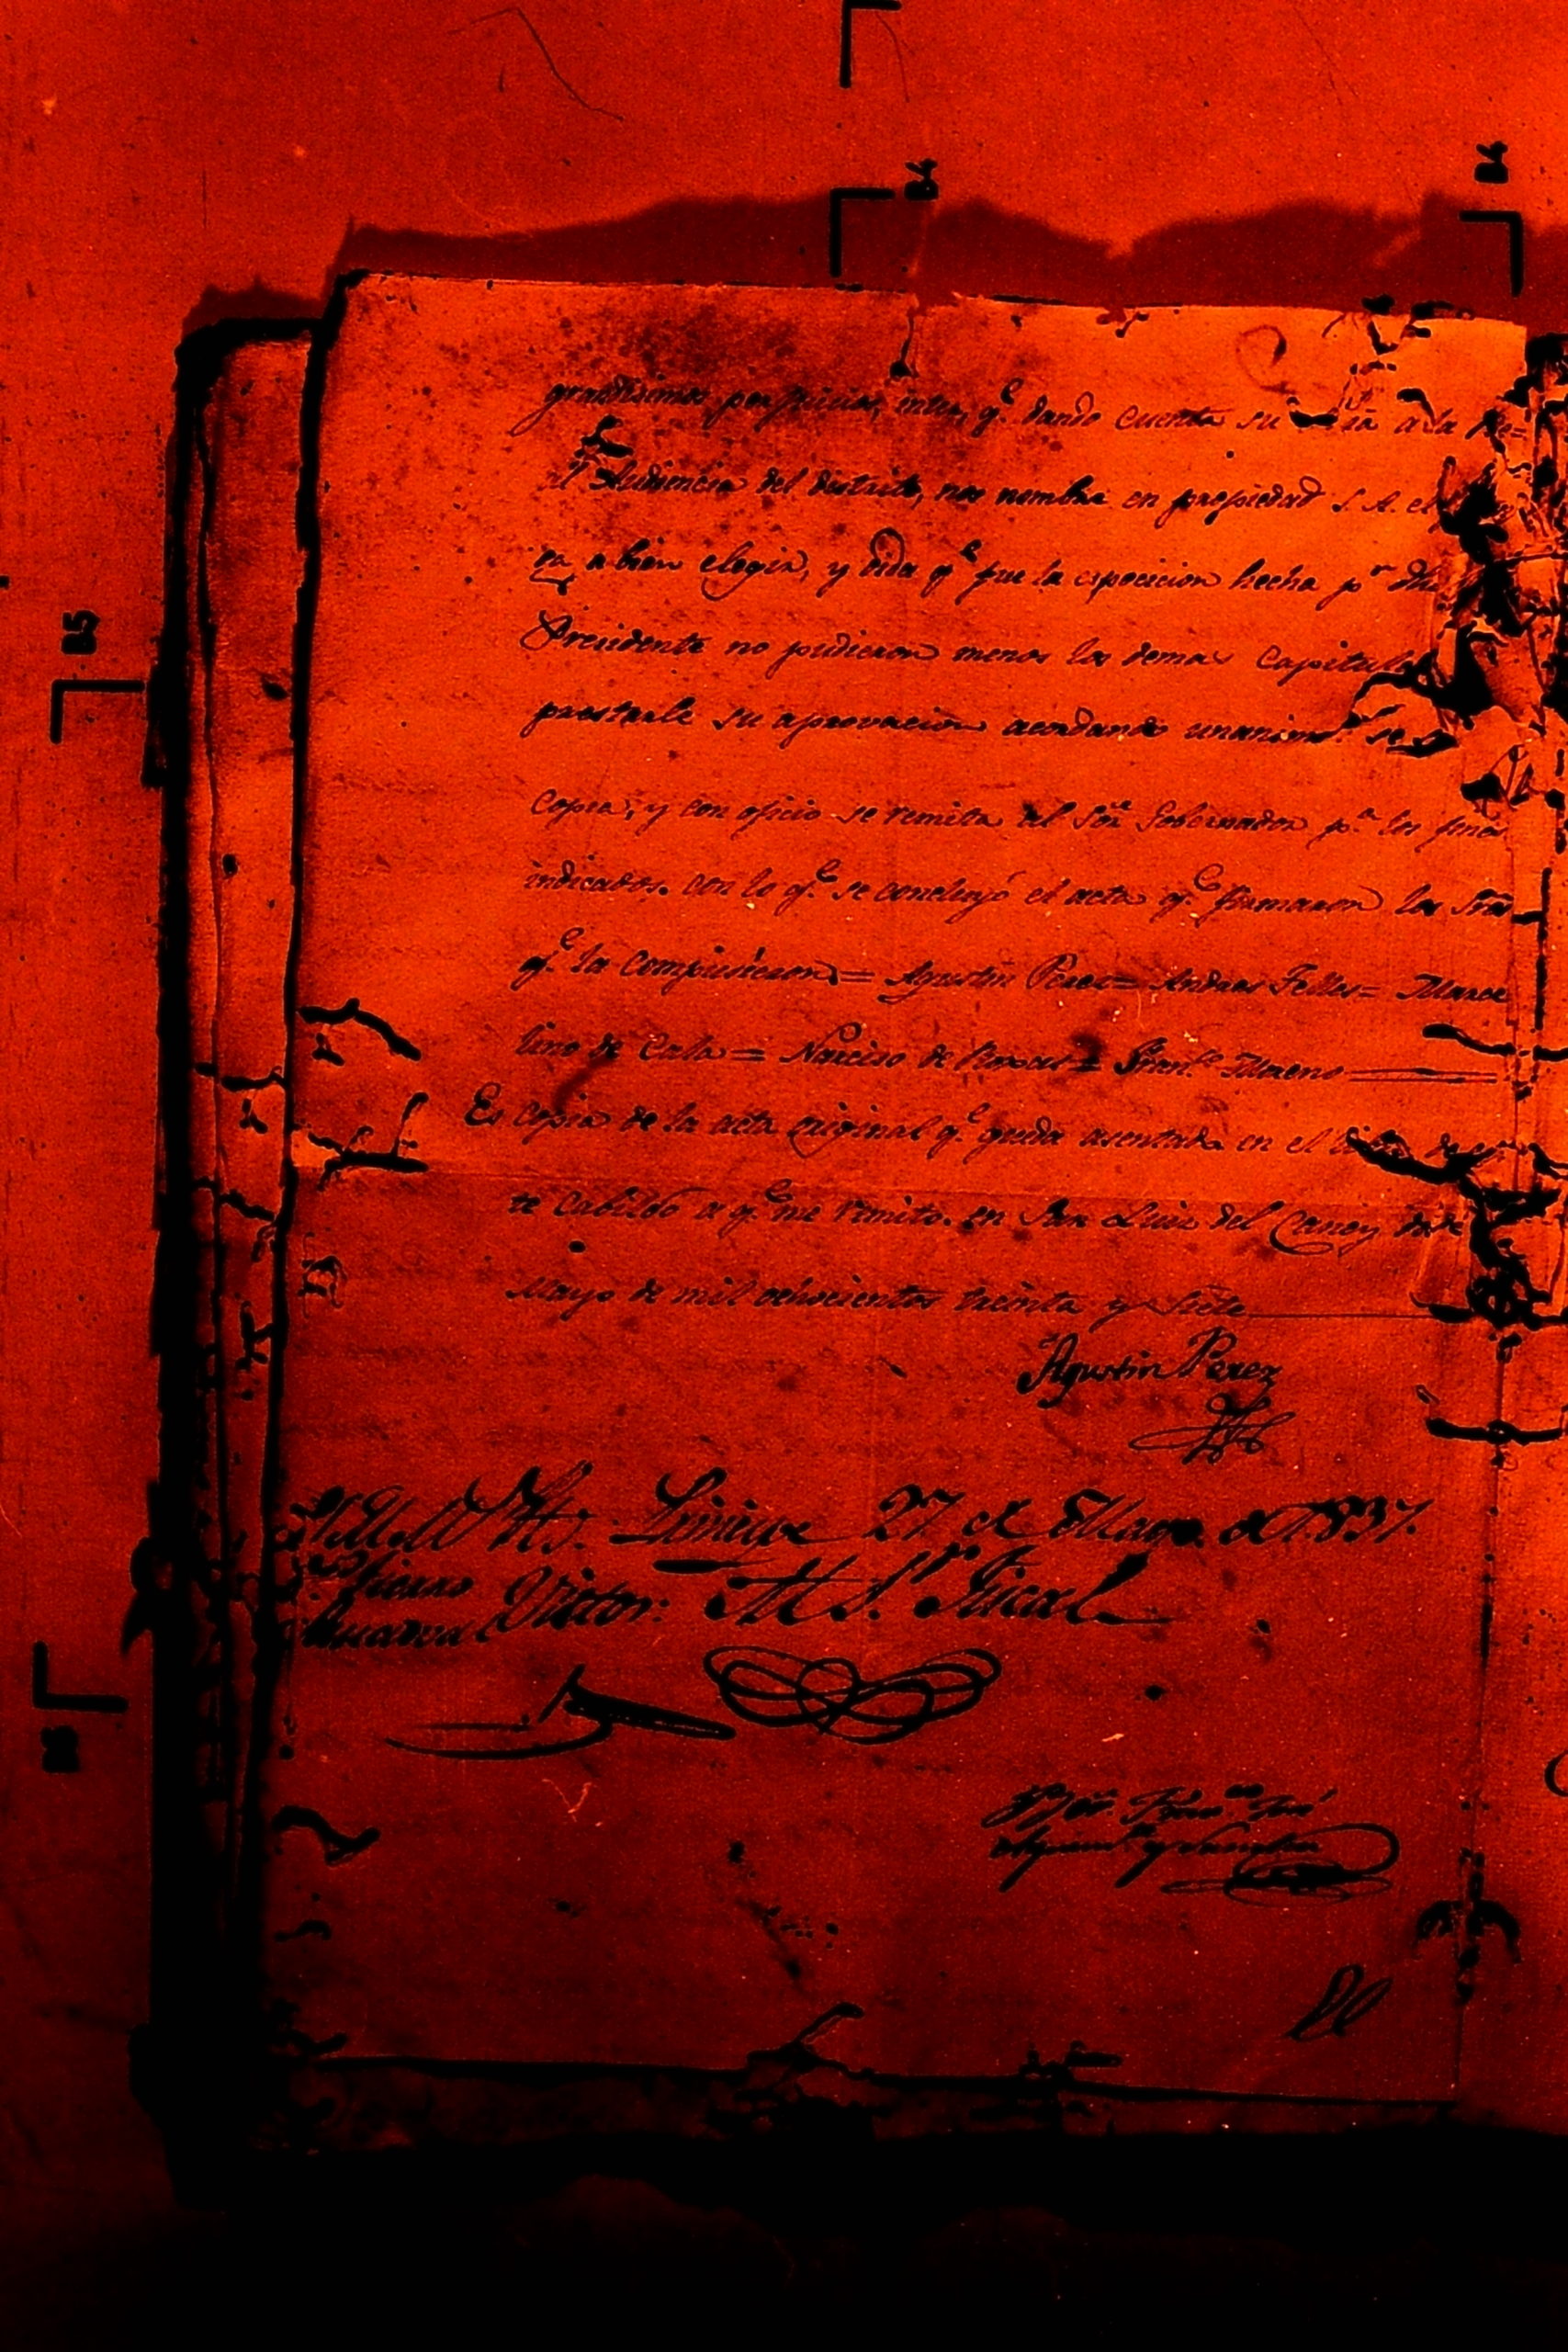 grandisimos perjuicios, inter q.e dando cuenta su a la Re=
al Audiencia del distrito, nos nombra en propiedad S. A. el
ga a bien elegir, y oida q.e fue la espocicion hecha p.r dho
Presidente no pudieron menos los demas Capitula
prestarle su aprovacion acordando unanim.e se
Copia, y con oficio se remita al Sor. Gobernador p.a los fines
indicados. con lo q.e se concluyó el acta q.e firmaron los Sres
q.e la compusieron = Agustin Perez = Andres Telles = Marce
lino de Cala = Narciso de Roxas = Fran.co Moreno
Es copia de la acta original q.e queda asentada en el
te Cabildo a q.e me remito. en San Luis del Caney
Mayo de mil ochocientos treinta y siete
Agustin Perez
27 de Mayo de 1837.
Victor: Al S.r Fiscal
B5
B4
B4